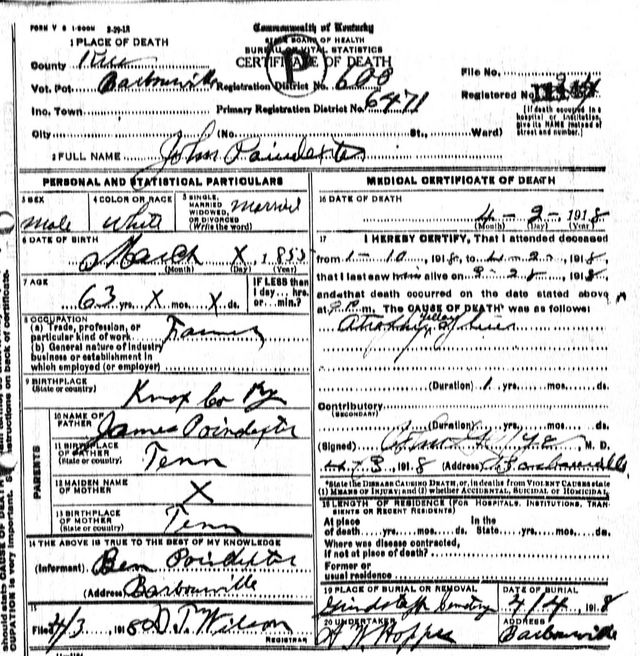 FORM V S 1-500M 2-29-18
Commonwealth of Kentucky
STATE BOARD OF HEALTH
BUREAU OF VITAL STATISTICS
CERTIFICATE OF DEATH
P
1 PLACE OF DEATH
County
Vot. Pct. Barbourville Registration District No. 600
File No.
Registered No.
Inc. Town Primary Registration District No. 6471
City (No. St., Ward)
[If death occurred in a hospital or institution, give its NAME instead of street and number.]
2 FULL NAME John Poindexter
PERSONAL AND STATISTICAL PARTICULARS
3 SEX Male
4 COLOR OR RACE White
5 SINGLE, MARRIED WIDOWED, OR DIVORCED (Write the word) Married
6 DATE OF BIRTH
March X 1855
(Month) (Day) (Year)
7 AGE
63 yrs. X mos. X ds.
IF LESS than 1 day... hrs. or... min.?
8 OCCUPATION
(a) Trade, profession, or particular kind of work Farmer
(b) General nature of industry business or establishment in which employed (or employer)
9 BIRTHPLACE (State or country) Knox Co Ky
PARENTS
10 NAME OF FATHER James Poindexter
11 BIRTHPLACE OF FATHER (State or country) Tenn
12 MAIDEN NAME OF MOTHER X
13 BIRTHPLACE OF MOTHER (State or country) Tenn
14 THE ABOVE IS TRUE TO THE BEST OF MY KNOWLEDGE
(Informant) Ben Poindexter
(Address) Barbourville
15
Filed 4/3 1918 D.T. Wilson
REGISTRAR
MEDICAL CERTIFICATE OF DEATH
16 DATE OF DEATH
4 - 2 - 1918
(Month) (Day) (Year)
17 I HEREBY CERTIFY, That I attended deceased
from 1-10, 1918, to 4-2, 1918,
that I last saw him alive on 3-28, 1918,
and that death occurred on the date stated above
at m. The CAUSE OF DEATH* was as follows:
Yellow
Atrophy of Liver
(Duration) 1 yrs. mos. ds.
Contributory
(SECONDARY)
(Duration) yrs. mos. ds.
(Signed) M. D.
1918 (Address) Barbourville
*State the DISEASE CAUSING DEATH, or, in deaths from VIOLENT CAUSES state (1) MEANS OF INJURY; and (2) whether ACCIDENTAL, SUICIDAL OR HOMICIDAL.
18 LENGTH OF RESIDENCE (FOR HOSPITALS, INSTITUTIONS, TRANSIENTS OR RECENT RESIDENTS)
At place of death yrs. mos. ds. In the State yrs. mos. ds.
Where was disease contracted,
if not at place of death?
Former or
usual residence
19 PLACE OF BURIAL OR REMOVAL
Cemetery
DATE OF BURIAL
1918
20 UNDERTAKER
ADDRESS
Barbourville